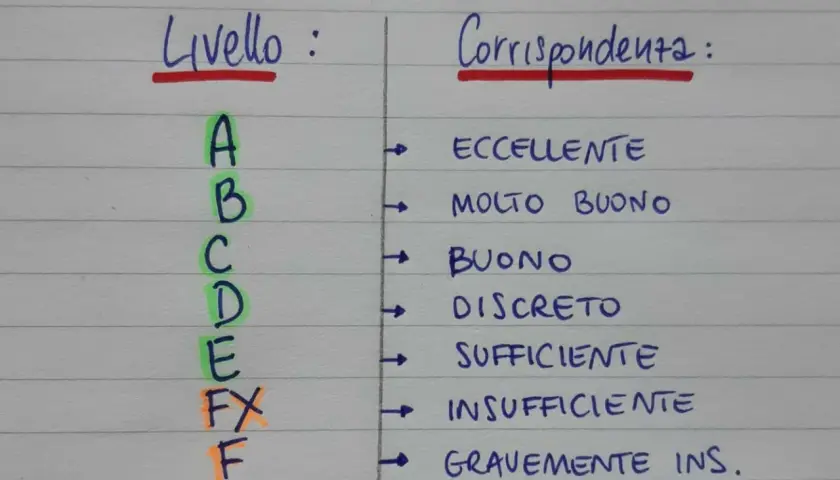 Livello : Corrispondenza :
A → ECCELLENTE
B → MOLTO BUONO
C → BUONO
D → DISCRETO
E → SUFFICIENTE
FX → INSUFFICIENTE
F → GRAVEMENTE INS.